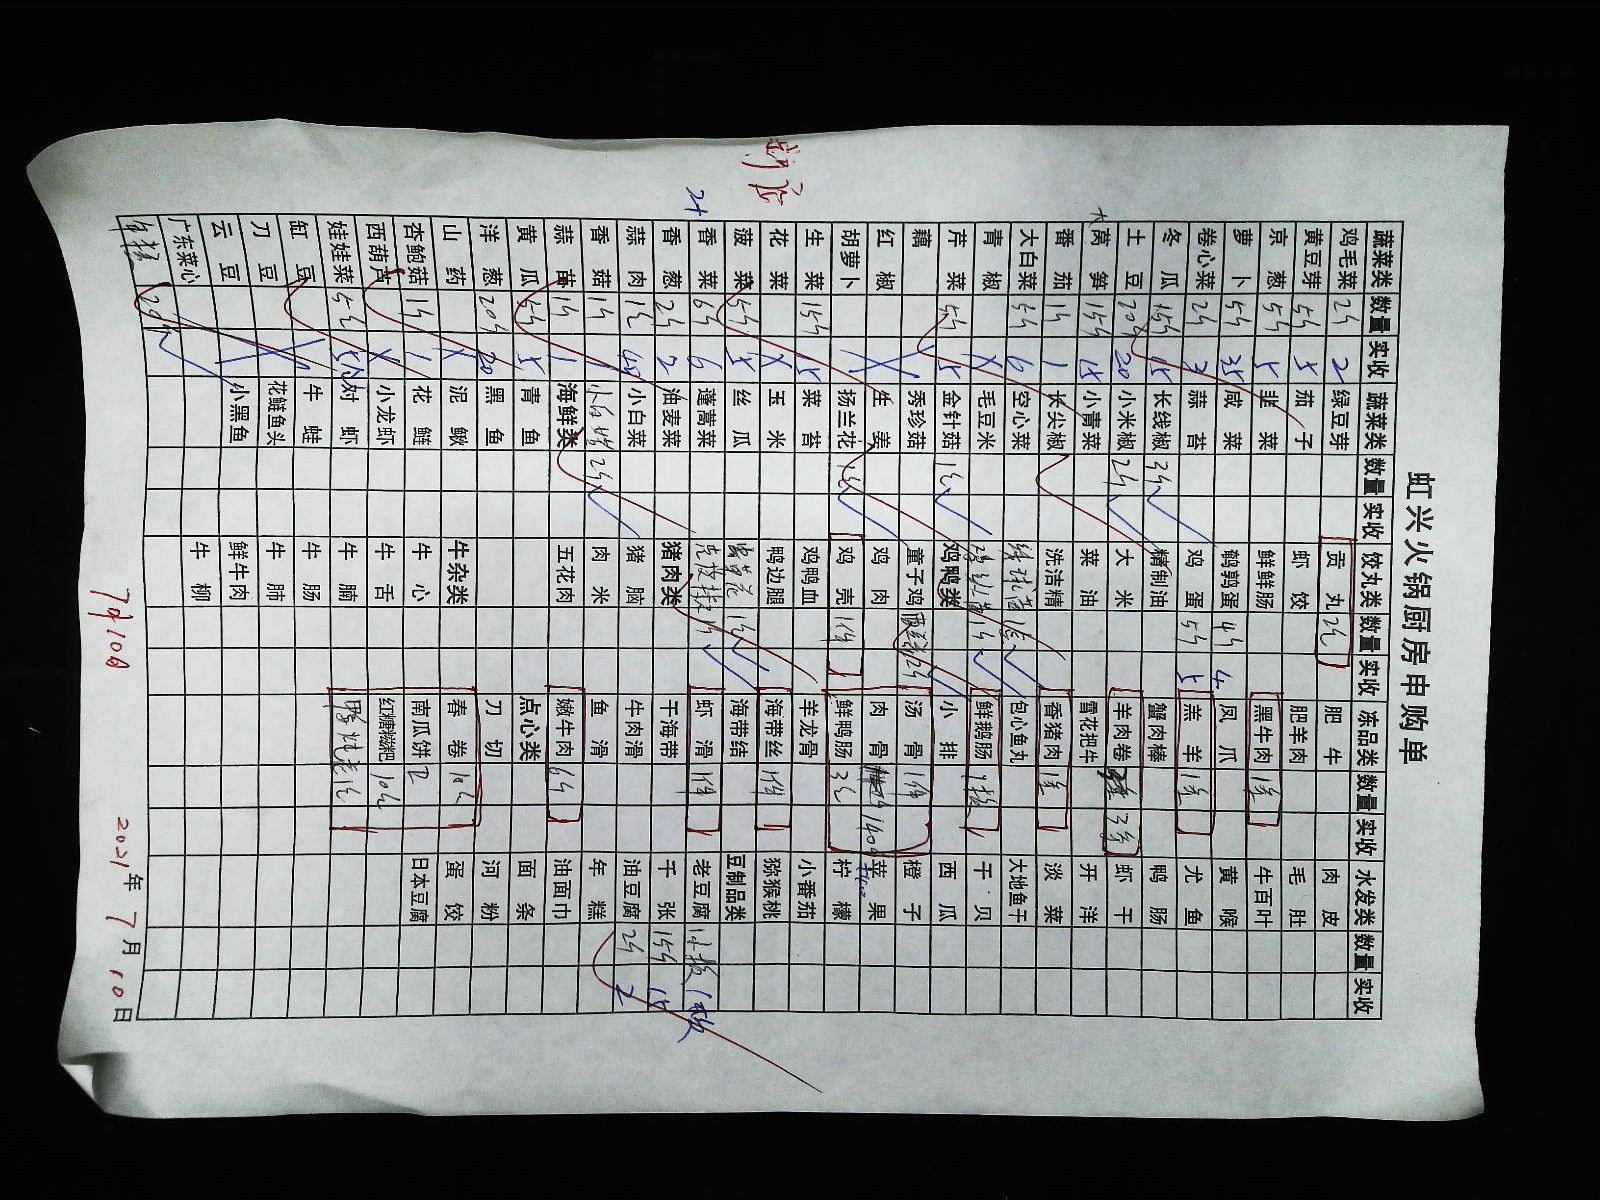 虹兴火锅厨房申购单
新店
蔬菜类 数量 实收 蔬菜类 数量 实收 饺丸类 数量 实收 冻品类 数量 实收 水发类 数量 实收
鸡毛菜 2斤 2 绿豆芽 贡丸 2包 肥牛 肉皮
黄豆芽 5斤 5 茄子 虾饺 肥羊肉 毛肚
京葱 5斤 5 韭菜 鲜鲜肠 黑牛肉 1条 牛百叶
萝卜 5斤 咸菜 鹌鹑蛋 4斤 4 凤爪 黄喉
卷心菜 2斤 蒜苔 鸡蛋 5斤 5 羔羊 1条 尤鱼
冬瓜 15斤 15 长线椒 3斤 精制油 蟹肉棒 鸭肠
大 土豆 20斤 20 小米椒 2斤 大米 羊肉卷 3条 虾干
莴笋 15斤 15 小青菜 菜油 雪花把牛 开洋
番茄 1斤 1 长尖椒 洗洁精 香猪肉 1条 淡菜
大白菜 6斤 6 空心菜 1包 包心鱼丸 大地鱼干
青椒 毛豆米 1斤 鲜鹅肠 1板 干贝
芹菜 5斤 5 金针菇 1包 鸡鸭类 小排 西瓜
藕 秀珍菇 童子鸡 2斤 汤骨 1件 橙子
红椒 生姜 鸡肉 肉骨 苹果
胡萝卜 扬兰花 1包 鸡壳 1件 鲜鸭肠 3包 柠檬
生菜 15斤 15 菜苔 鸡鸭血 羊龙骨 小番茄
花菜 玉米 鸭边腿 海带丝 1件 猕猴桃
菠菜 5斤 5 丝瓜 1包 海带结 豆制品类
香菜 6斤 6 蓬蒿菜 虾滑 1件 老豆腐 1板
香葱 2斤 2 油麦菜 猪肉类 干海带 千张 15斤 15
蒜肉 1包 小白菜 猪脑 牛肉滑 油豆腐 2斤 2
香菇 1斤 2斤 肉米 鱼滑 年糕
蒜苗 1斤 1 海鲜类 五花肉 嫩牛肉 6斤 油面巾
黄瓜 5斤 5 青鱼 点心类 面条
洋葱 20斤 20 黑鱼 刀切 河粉
山药 泥鳅 牛杂类 春卷 10包 蛋饺
杏鲍菇 1斤 1 花鲢 牛心 南瓜饼 2 日本豆腐
西葫芦 小龙虾 牛舌 红糖糍粑 10包
娃娃菜 5包 对虾 牛腩
缸豆 牛蛙 牛肠
刀豆 花鲢鱼头 牛肺
云豆 小黑鱼 鲜牛肉
广东菜心 牛柳
20斤
7月10日 2021年7月10日